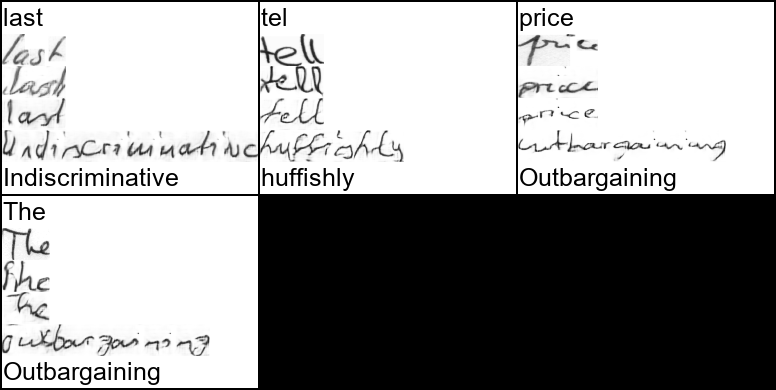 last
last
last
last
Undiscriminative
Indiscriminative
tel
tell
tell
tell
huffishly
huffishly
price
price
price
price
outbargaining
Outbargaining
The
The
The
The
outbargaining
Outbargaining